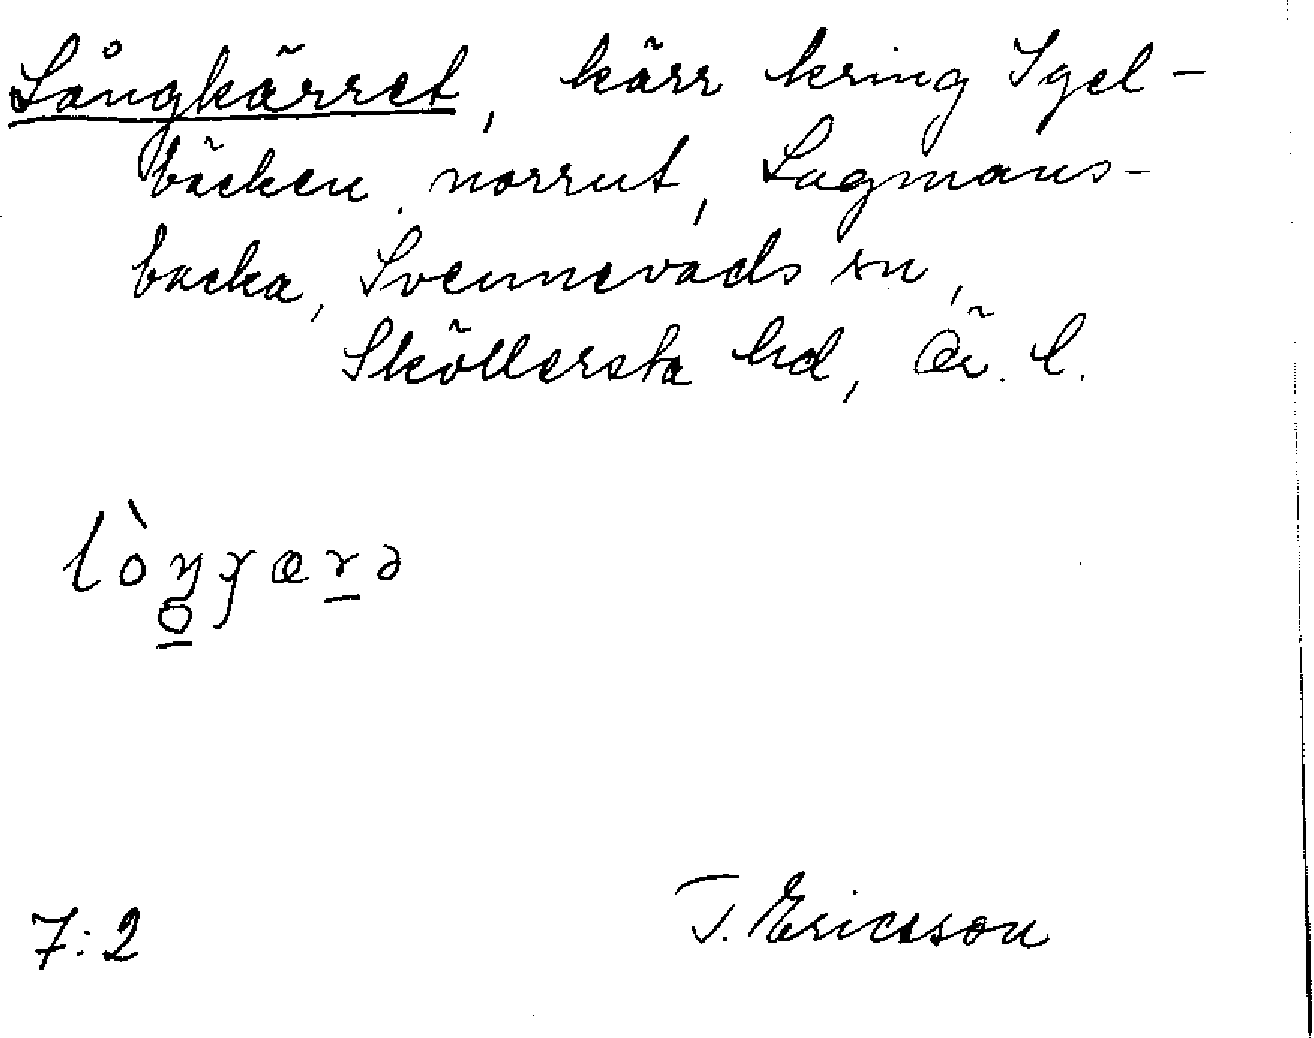 Långkärret, kärr kring Igel-
bäcken norrut, Lagmans-
backa, Svennevads sn,
Sköllersta hd, Ör. l.
7:2
T. Ericsson